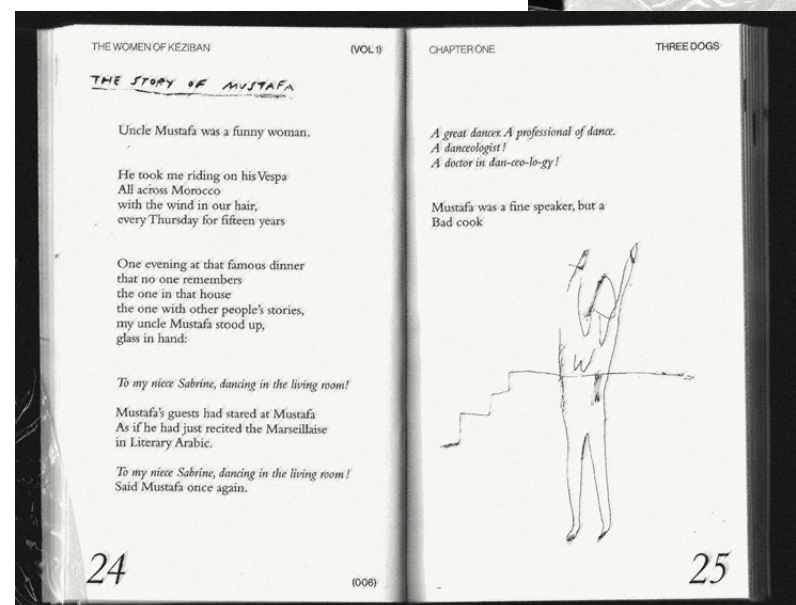 THE WOMEN OF KÉZIBAN
(VOL 1)
THE STORY OF MUSTAFA
Uncle Mustafa was a funny woman.
He took me riding on his Vespa
All across Morocco
with the wind in our hair,
every Thursday for fifteen years
One evening at that famous dinner
that no one remembers
the one in that house
the one with other people's stories,
my uncle Mustafa stood up,
glass in hand:
To my niece Sabrine, dancing in the living room!
Mustafa's guests had stared at Mustafa
As if he had just recited the Marseillaise
in Literary Arabic.
To my niece Sabrine, dancing in the living room !
Said Mustafa once again.
24
(006)
CHAPTER ONE
THREE DOGS
A great dancer. A professional of dance.
A danceologist !
A doctor in dan-ceo-lo-gy !
Mustafa was a fine speaker, but a
Bad cook
25